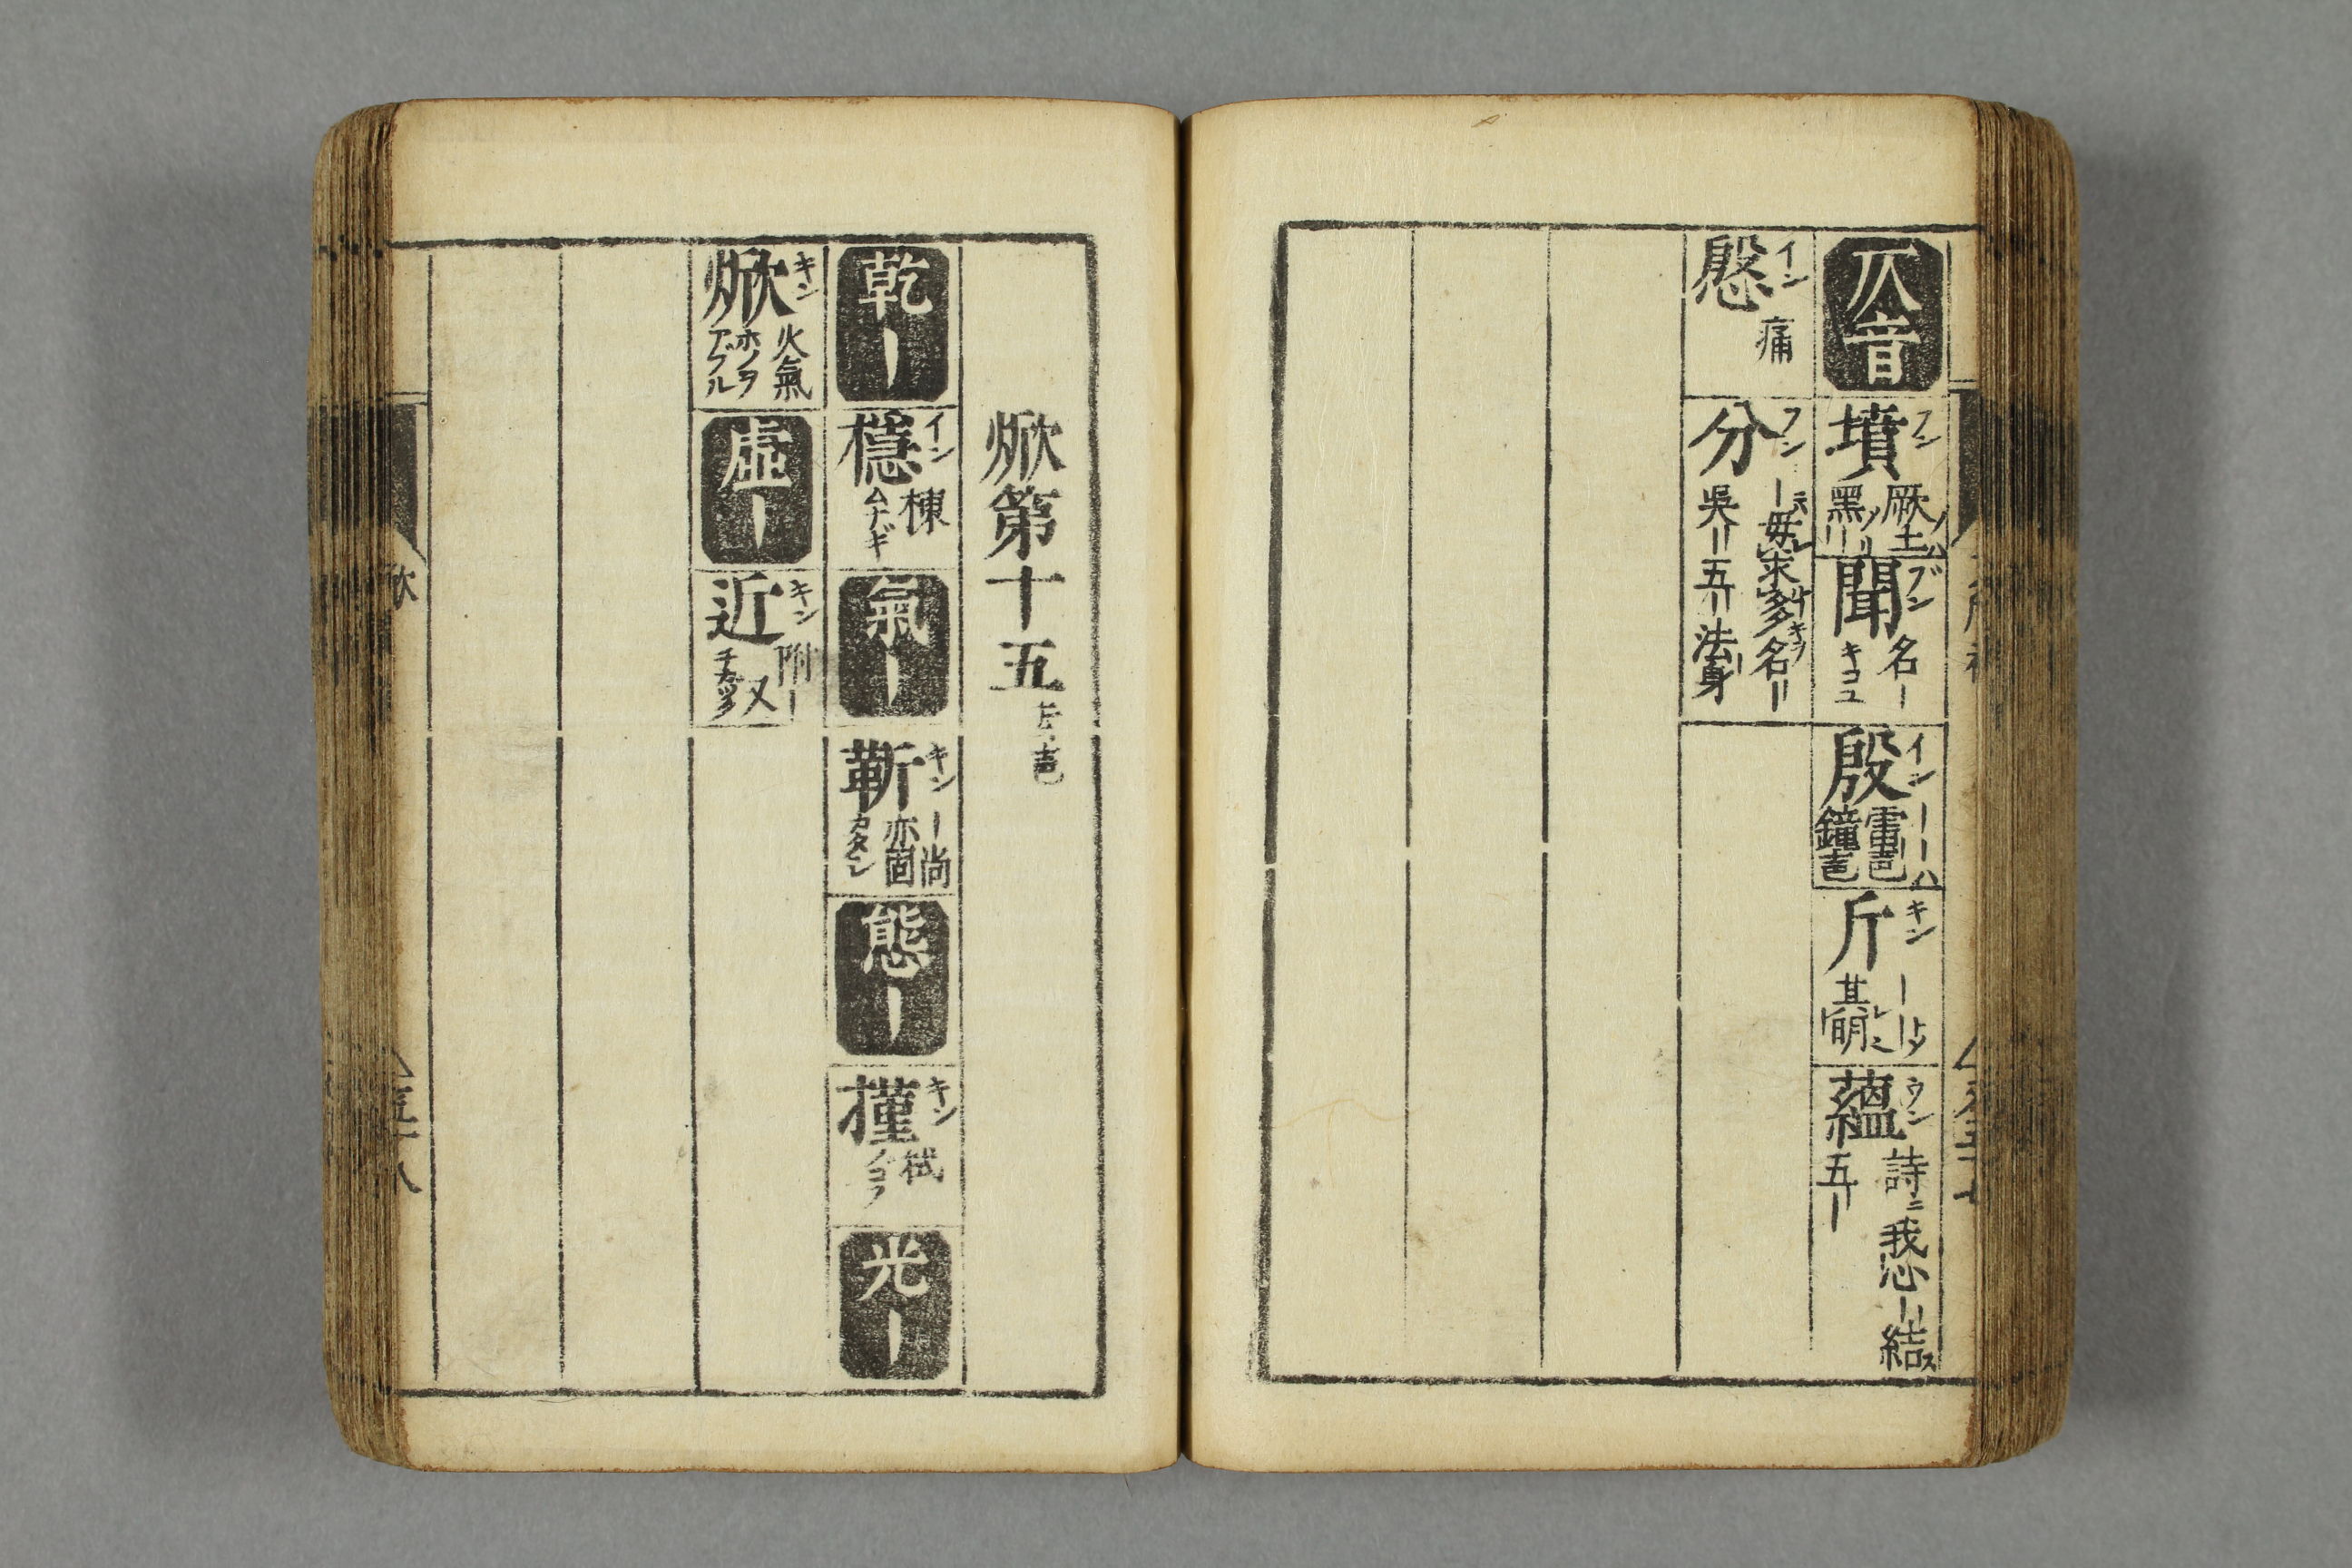 仄音
墳 フン 厥ノ土ハ黑ノリ
聞 ブン 名ー キコユ
殷 イン ーーハ雷声 鐘声
斤 キン ーータリ 其明
蘊 ウン 詩ニ我心ー結ス 五ー
慇 イン 痛
分 フン ー毋求多 名ー 吳ー五ー法身
焮第十五 去声
乾ー
檼 イン 棟 ムナギ
氣ー
靳 キン ー尚 亦固 カタシ
態ー
㨷 キン 拭 ノコフ
光ー
焮 キン 火氣 ホノヲ アブル
虛ー
近 キン 附ー 又チカツク